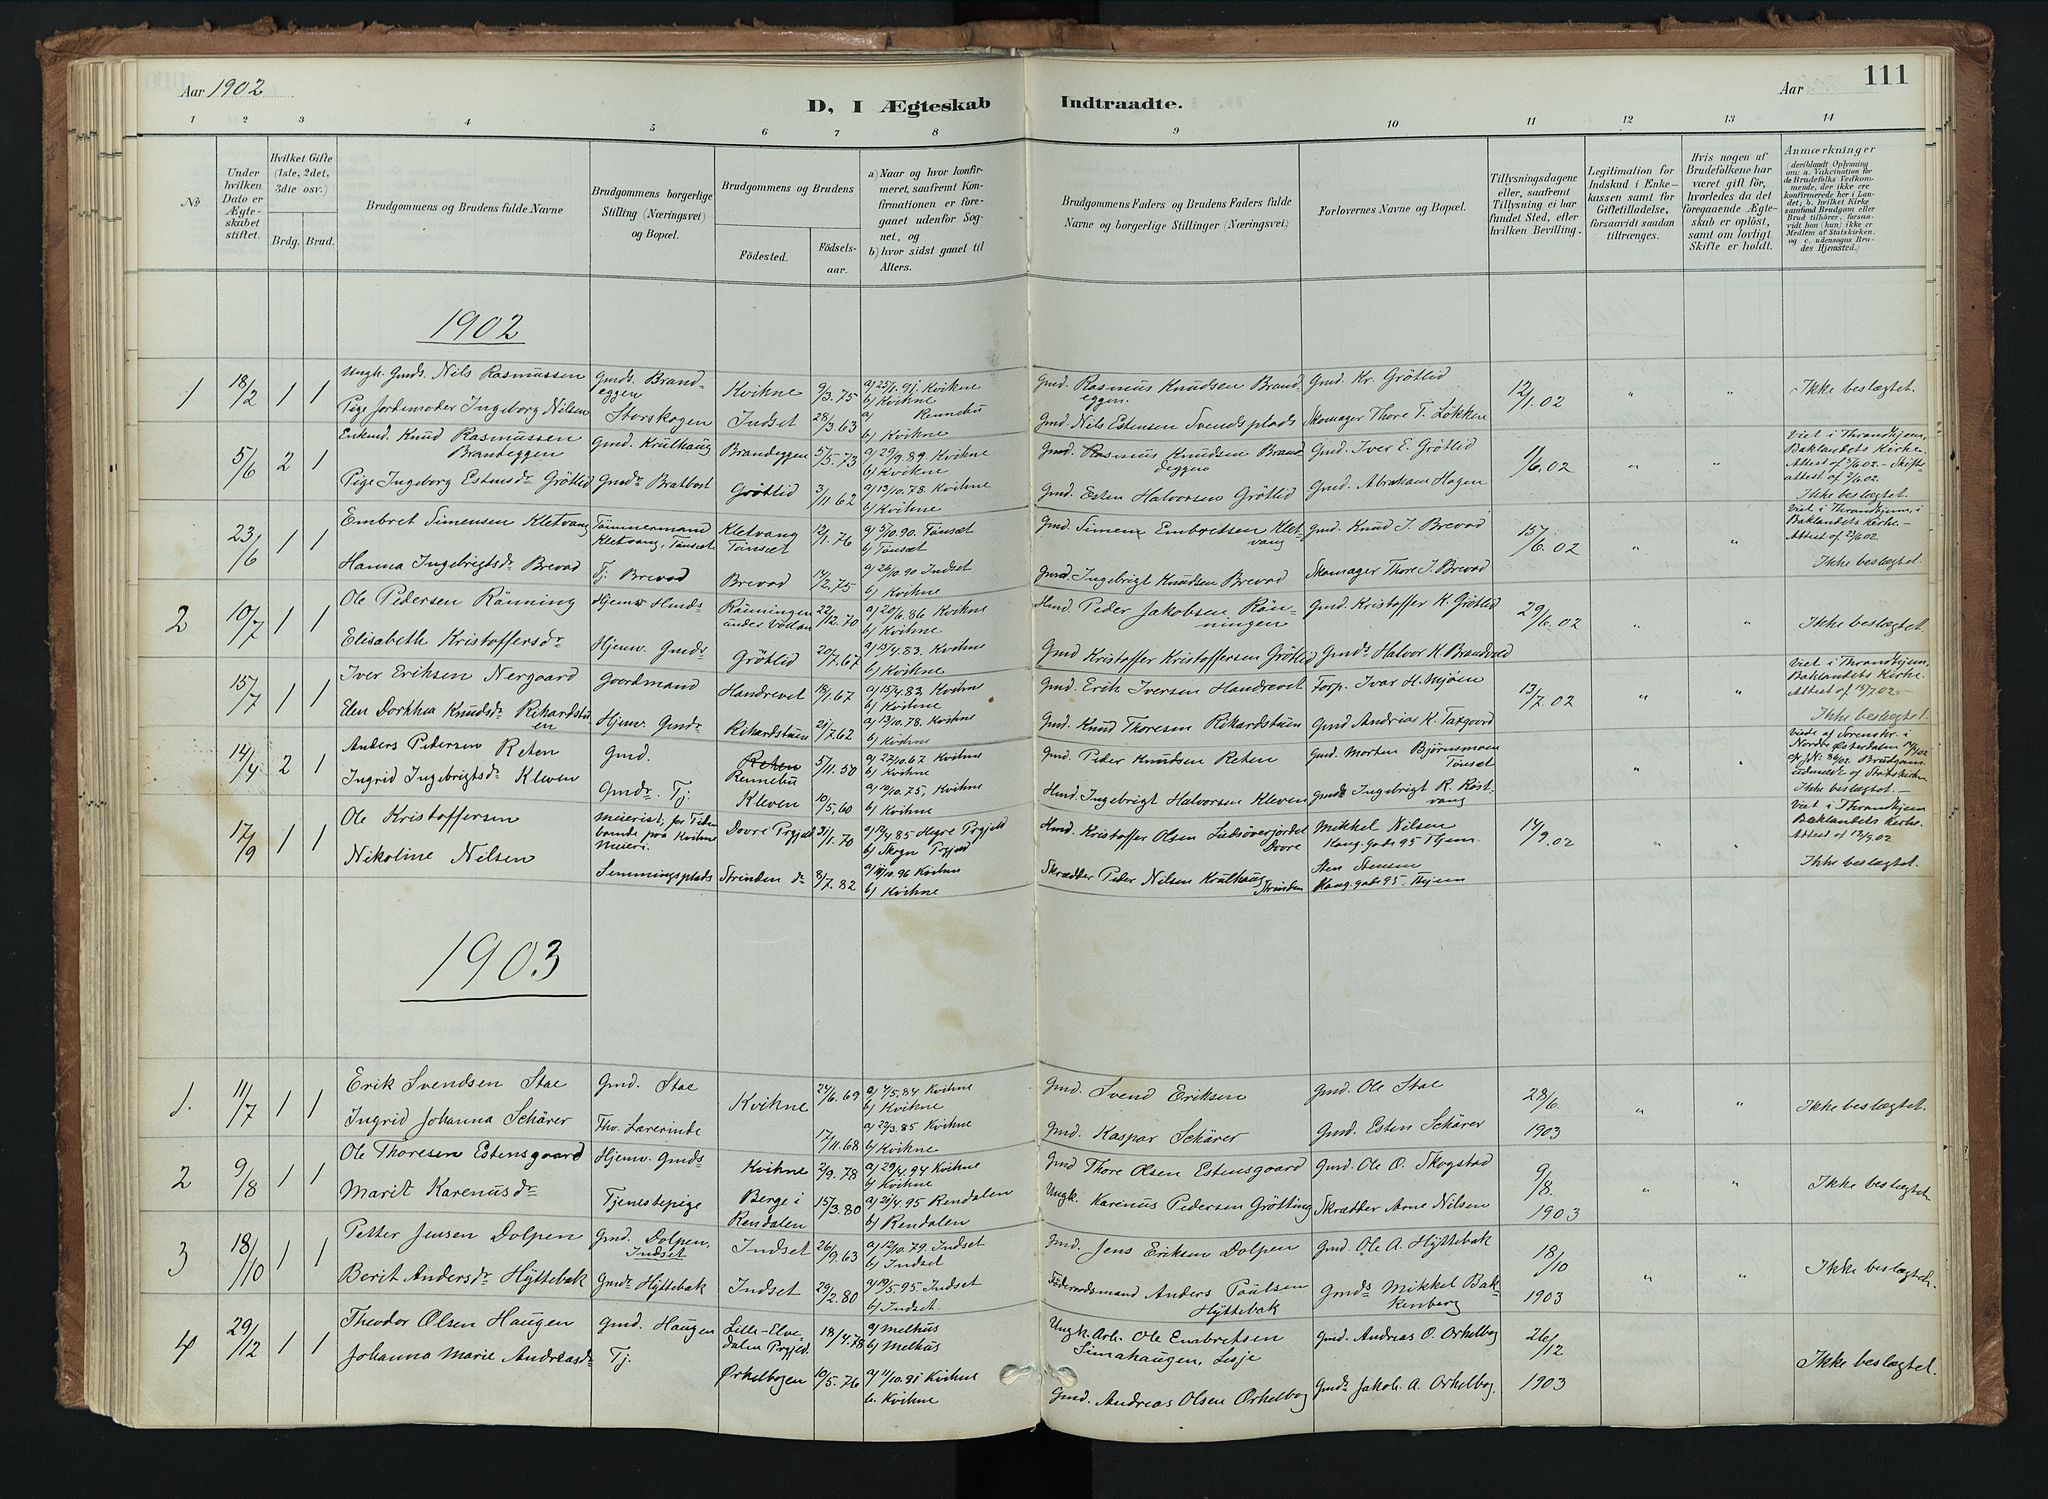 Aar 1902
D, I Ægteskab Indtraadte.
Aar
111
1 2 3 4 5 6 7 8 9 10 11 12 13 14
No
Under hvilken Dato er Ægteskabet stiftet.
Hvilket Gifte (1ste, 2det, 3die osv.)
Brdg. Brud.
Brudgommens og Brudens fulde Navne
Brudgommens borgerlige Stilling (Næringsvei) og Bopæl.
Brudgommens og Brudens
Födested.
Födselsaar.
a) Naar og hvor konfirmeret, saafremt Konfirmationen er foregaaet udenfor Sognet, og
b) hvor sidst gaaet til Alters.
Brudgommens Faders og Brudens Faders fulde Navne og borgerlige Stillinger (Næringsvei)
Forlovernes Navne og Bopæl.
Tillysningsdagene eller, saafremt Tillysning ei har fundet Sted, efter hvilken Bevilling.
Legitimation for Indskud i Enkekassen samt for Giftetilladelse, forsaavidt saadan tiltrænges.
Hvis nogen af Brudefolkene har været gift för, hvorledes da det foregaaende Ægteskab er oplöst, samt om lovligt Skifte er holdt.
Anmærkninger
(deriblandt Oplysning om: a. Vaccination for de Brudefolks Vedkommende, der ikke ere konfirmerede her i Landet; b. hvilket Kirkesamfund Brudgom eller Brud tilhörer, forsaavidt han (hun) ikke er Medlem af Statskirken, og c. udensogns Brudes Hjemsted.)
1902
1 18/2 1 1 Ungk. Gmds. Nils Rasmussen Gmds. Brandeggen Kvikne 9/3.75 a) 25/1.91. Kvikne b) Kvikne Gmd. Rasmus Knudsen Brandeggen. Gmd. Kr. Grötlid 12/1.02 " " Ikke beslægtet.
Pige Jordemoder Ingeborg Nilsen Storskogen Indset 28/3.63 a) Rennebu b) Kvikne Gmd. Nils Estensen Svendsplads Skomager Thore T. Løkken
5/6 2 1 Enkemd. Knud Rasmussen Brandeggen Gmd. Krulhaug Brandeggen 5/5.73 a) 29/9.89 Kvikne b) Kvikne Gmd. Rasmus Knudsen Brandeggen Gmd. Iver E. Grötlid 1/6.02 " " Viet i Throndhjem, Baklandets Kirke. Attest af 5/6 02. - Skifteattest af 2/6 02. Ikke beslægtet.
Pige Ingeborg Estensdr Grötlid Gmdr Bratbost Grötlid 3/11 62 a) 13/10.78. Kvikne b) Kvikne Gmd. Esten Halvorsen Grötlid Gmd. Abraham Hagen
23/6 1 1 Embret Simensen Kletvang Tömmermand Kletvang, Tönset Kletvang Tönset 12/1.76 a) 5/10.90. Tönset b) Tönset Gmd. Simen Embretsen Kletvang Gmd. Knud I. Brevad 15/6.02 " " Viet i Throndhjem, i Baklandets Kirke. - Attest af 23/6 02 Ikke beslægtet.
Hanna Ingebrigtsdr Brevad Tj. Brevad Brevad 14/2.75 a) 26/10.90 Indset b) Kvikne Gmd. Ingebrigt Knudsen Brevad Skomager Thore I. Brevad
2 10/7 1 1 Ole Pedersen Rönning Hjemv. Hmds Rönningen under Vollan 22/12.70 a) 20/6.86 Kvikne b) Kvikne Hmd. Peder Jakobsen Rönningen Gmd. Kristoffer K. Grötlid 29/6.02 " " Ikke beslægtet.
Elisabeth Kristoffersdr Hjemv. Gmdsdr Grötlid 20/7.67 a) 15/4.83. Kvikne b) Kvikne Gmd Kristoffer Kristoffersen Grötlid Gmds Halvor K. Brandvold
15/7 1 1 Iver Eriksen Nergaard Gaardmand Handrevet 18/1.67 a) 15/4.83. Kvikne b) Kvikne Gmd. Erik Iversen Handrevet Forp. Ivar H. Mjöen 13/7.02 " " Viet i Throndhjem, Baklandets Kirke. Attest af 15/7 02. - Ikke beslægtet.
Elen Dorthea Knudsdr Rikardstuen Hjemv. Gmdr. Rikardstuen 21/7.62 a) 13/10.78. Kvikne b) Kvikne Gmd. Knud Thoresen Rikardstuen Gmd Andrias K. Taxgaard
14/4 2 1 Anders Pedersen Reten Gmd. Reten Rennebu 5/11.50 a) 22/10.67 Kvikne b) Kvikne Gmd. Peder Knudsen Reten Gmd. Morten Björnsmoen Tönset " " Viede af Sorenskr. i Nordre Österdalen Brudgom udmeldt af Statskirken. Ikke beslægtet. -
Ingrid Ingebrigtsdr Kleven Gmdr. Tj. Kleven 10/5.60 a) 10/10.75, Kvikne b) Kvikne Hmd. Ingebrigt Halvorsen Kleven Gmds Ingebrigt R. Röstvang
17/9 1 1 Ole Kristoffersen Meierist, for Tiden boende paa Kvikne Meieri. Dovre Prgjeld 31/1.70 a) 12/4.85 Hegre Prgjeld b) Skogn Prgjeld Hmd. Kristoffer Olsen Dovre Mikkel Nilsen Kong. gade 95 Thjem. 14/9.02 " " Viet i Throndhjem Baklandets Kirke. Attest af 17/9 02 Ikke beslægtet.
Nikoline Nilsen Semmingsplads Strinden dr 8/7.82 a) 11/10.96 Kvikne b) Kvikne Skrædder Peder Nilsen Krulhaug Strinden Sten Stensen Kong. gade 95. Thjem
1903
1. 11/7 1 1 Erik Svendsen Stae Gmd. Stae Kvikne 24/6.69 a) 4/5.84 Kvikne b) Kvikne Gmd. Svend Eriksen Gmd. Ole Stae 28/6 1903 " " Ikke beslægtet.
Ingrid Johanna Schärer Fhv. Lærerinde 17/11.68 a) 22/3.85 Kvikne b) Kvikne Gmd. Kaspar Schärer Gmd. Esten Schärer
2 9/8 1 1 Ole Thoresen Estensgaard Hjemv. Gmds Kvikne 2/9.78 a) 29/4.94 Kvikne b) Kvikne Gmd Thore Olsen Estensgaard Gmd. Ole O. Skogstad 9/8. 1903 " " Ikke beslægtet.
Marit Karenusdr Tjenestepige Berge i Rendalen 15/3.80 a) 21/4.95 Rendalen b) Rendalen Ungk. Karenus Pedersen Grötting Skrædder Arne Nilsen
3 18/10 1 1 Petter Jensen Dolpen Gmd. Dolpen, Indset Indset 26/9.63 a) 12/10.79. Indset b) Indset Gmd. Jens Eriksen Dolpen Gmd. Ole A. Hÿttebak 18/10 1903 " " Ikke beslægtet.
Berit Andersdr Hÿttebak Gmdr Hÿttebak Indset 29/2.80 a) 19/5.95 Indset b) Indset. Föderaadsmand Anders Paulsen Hÿttebak Gmds Mikkel Bakkenberg
4 29/12 1 1 Theodor Olsen Haugen Gmd. Haugen Lille-Elvedalen Prgjeld. 18/4.78 a) Melhus b) Melhus Ungk. Arb. Ole Embretsen Simahaugen, Lesje Gmd. Andreas O. Orkelbog 26/12 1903 Ikke beslægtet.
Johanna Marie Andreasdr Tj. Orkelbogen 10/5.76 a) 11/10.91 Kvikne b. Kvikne Gmd. Andreas Olsen Orkelbog Gmds Jakob. A. Orkelbog.